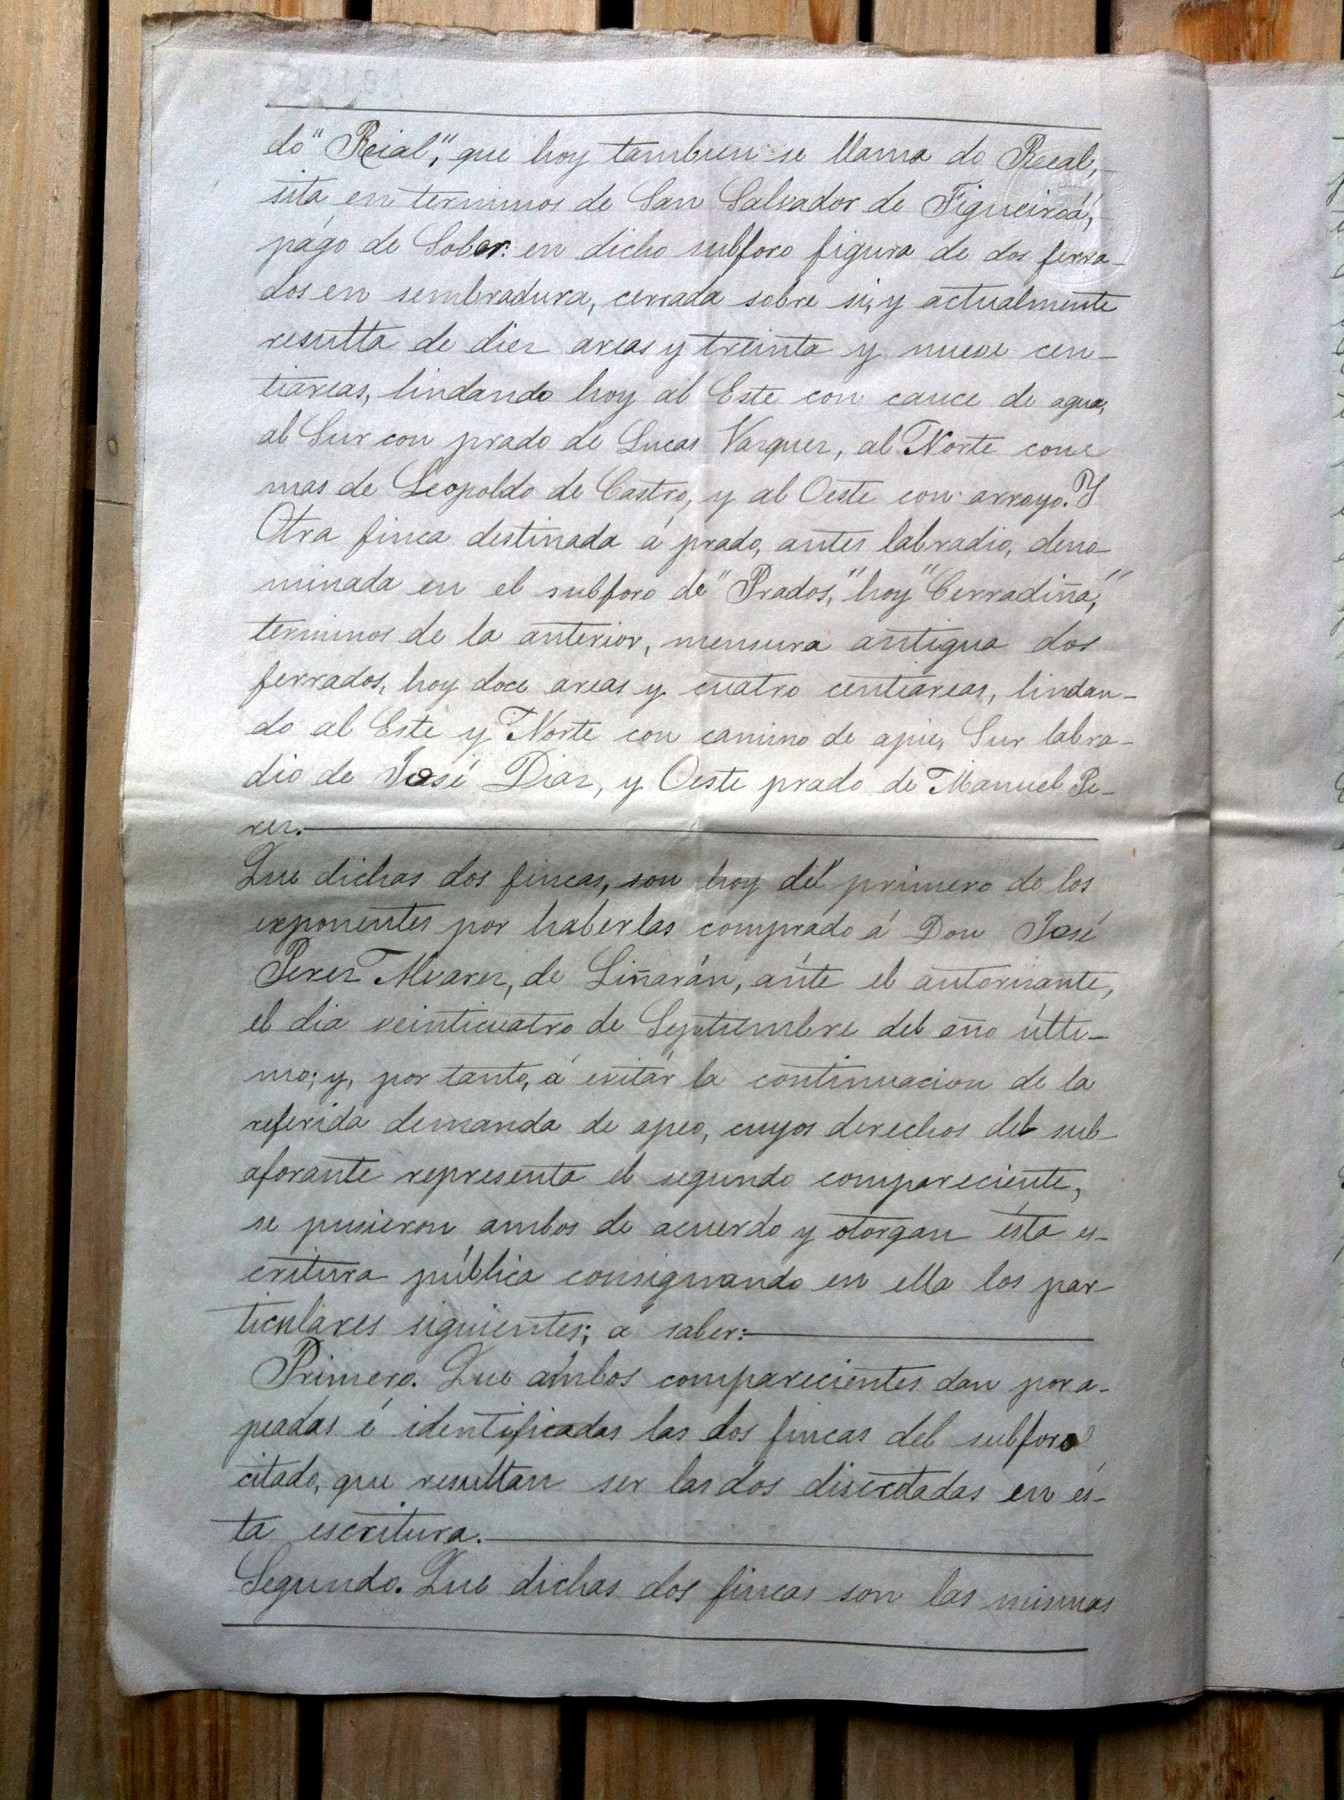 do "Reial", que hoy tambien se llama do Real,
sita en terminos de San Salvador de Figueiroá,
pago de Sober: en dicho subforo figura de dos ferra-
dos en sembradura, cerrada sobre si, y actualmente
resulta de diez areas y treinta y nueve cen-
tiareas, lindando hoy al Este con cauce de agua,
al Sur con prado de Lucas Vazquez, al Norte con
mas de Leopoldo de Castro, y al Oeste con arroyo. Y
Otra finca destinada á prado, antes labradio, deno-
minada en el subforo de "Prados," hoy "Cerradiña,"
terminos de la anterior, mensura antigua dos
ferrados, hoy doce areas y cuatro centiareas, lindan-
do al Este y Norte con camino de apie, Sur labra-
dio de José Diaz, y Oeste prado de Manuel Pe-
rez.
Que dichas dos fincas, son hoy del primero de los
exponentes por haberlas comprado á Don José
Perez Alvarez, de Liñarán, ánte el autorizante,
el dia veinticuatro de Septiembre del año últi-
mo; y, por tanto, á evitár la continuacion de la
referida demanda de apeo, cuyos derechos del sub-
aforante representa el segundo compareciente,
se pusieron ambos de acuerdo y otorgan ésta es-
critura pública consignando en ella los par-
ticulares siguientes; á saber:
Primero. Que ambos comparecientes dan por a-
peadas é identificadas las dos fincas del subforo
citado, que resultan ser las dos en és-
ta escritura.
Segundo. Que dichas dos fincas son las mismas